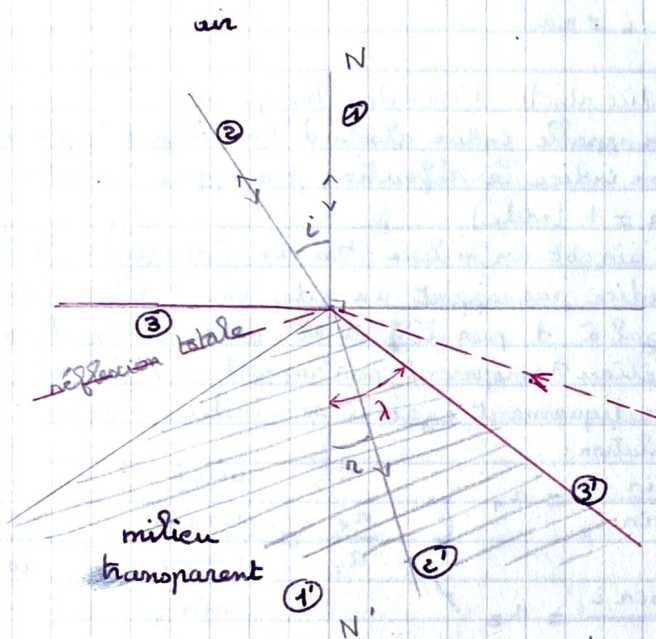 air
N
①
②
i
③
réflexion totale
λ
r
③'
milieu
transparent
②'
①'
N'